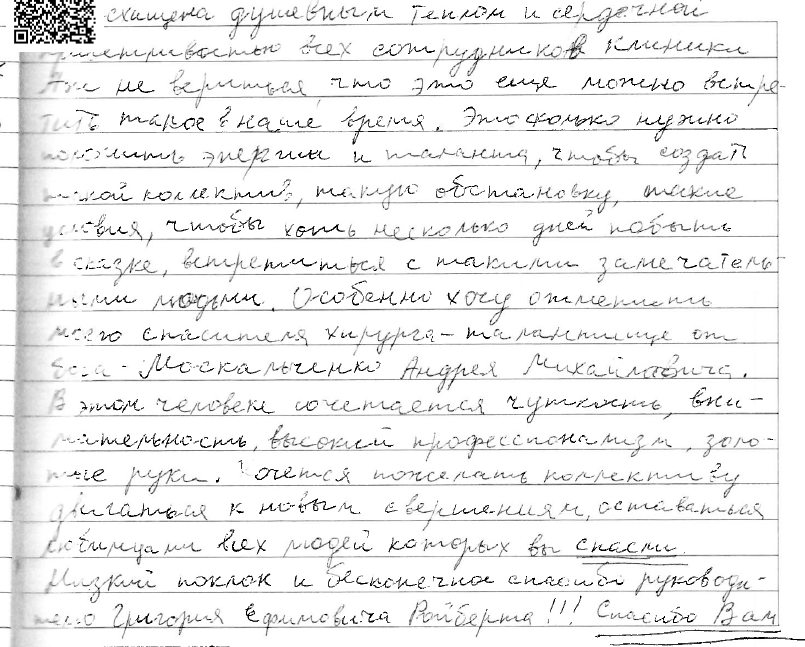 схищена душевным теплом и сердечной
приветливостью всех сотрудников клиники
Аж не вериться, что это еще можно встре-
тить такое в наше время. Это сколько нужно
положить энергии и таланта, чтобы создать
такой коллектив, такую обстановку, такие
условия, чтобы хоть несколько дней побыть
в сказке, встретиться с такими замечатель-
ными людьми. Особенно хочу отметить
моего спасителя хирурга - талантище от
бога - Москальченко Андрея Михайловича.
В этом человеке сочетается чуткость, вни-
мательность, высокий профессионализм, золо-
тые руки. Хочется пожелать коллективу
двигаться к новым свершениям, оставаться
любимцами всех людей которых вы спасли.
Низкий поклон и бесконечное спасибо руководи-
телю Григория Ефимовича Ройберта!!! Спасибо Вам